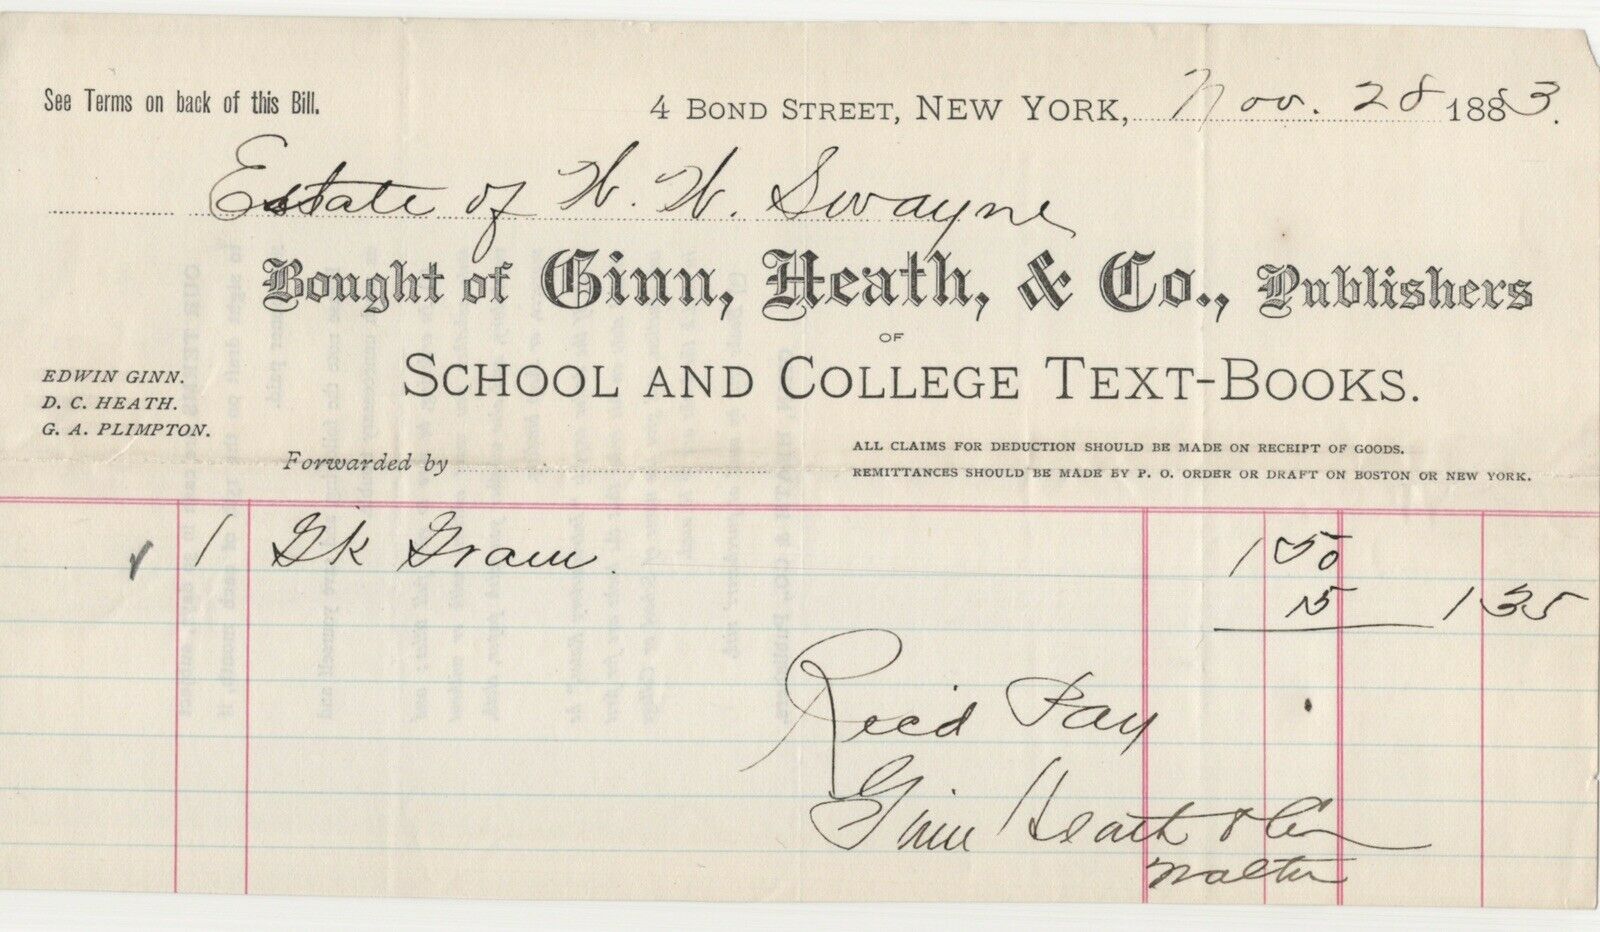 See Terms on back of this Bill.
4 BOND STREET, NEW YORK, Nov. 28 1883.
Estate of W. W. Swayne
Bought of Ginn, Heath, & Co., Publishers
OF
SCHOOL AND COLLEGE TEXT-BOOKS.
EDWIN GINN.
D. C. HEATH.
G. A. PLIMPTON.
Forwarded by
ALL CLAIMS FOR DEDUCTION SHOULD BE MADE ON RECEIPT OF GOODS.
REMITTANCES SHOULD BE MADE BY P. O. ORDER OR DRAFT ON BOSTON OR NEW YORK.
1 Gk Gram. 1 50
15 1 35
Rec'd Pay
Ginn Heath & Co
Walter